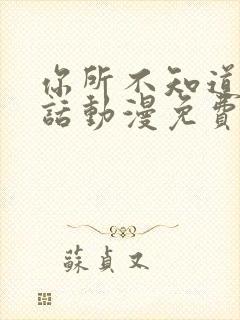 你所不知道
話動漫免費
蘇貞又